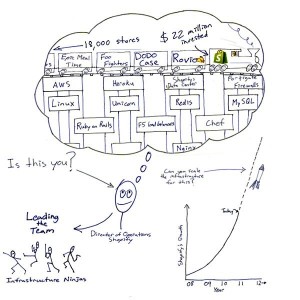 18,000 stores
$22 million
invested
Epic Meal
Time
Foo
Fighters
DODO
Case
Rovio
AWS
Heroku
Shopify's
Data Center
Fortigate
Firewalls
Linux
Unicorn
Redis
MySQL
Ruby on Rails
F5 loadbalancers
Chef
Nginx
Is this you?
Can you scale
the infrastructure
for this?
Today
Leading
the
Team
Director of Operations
Shopify
Infrastructure Ninjas
Shopify's Growth
08 09 10 11 12
Year